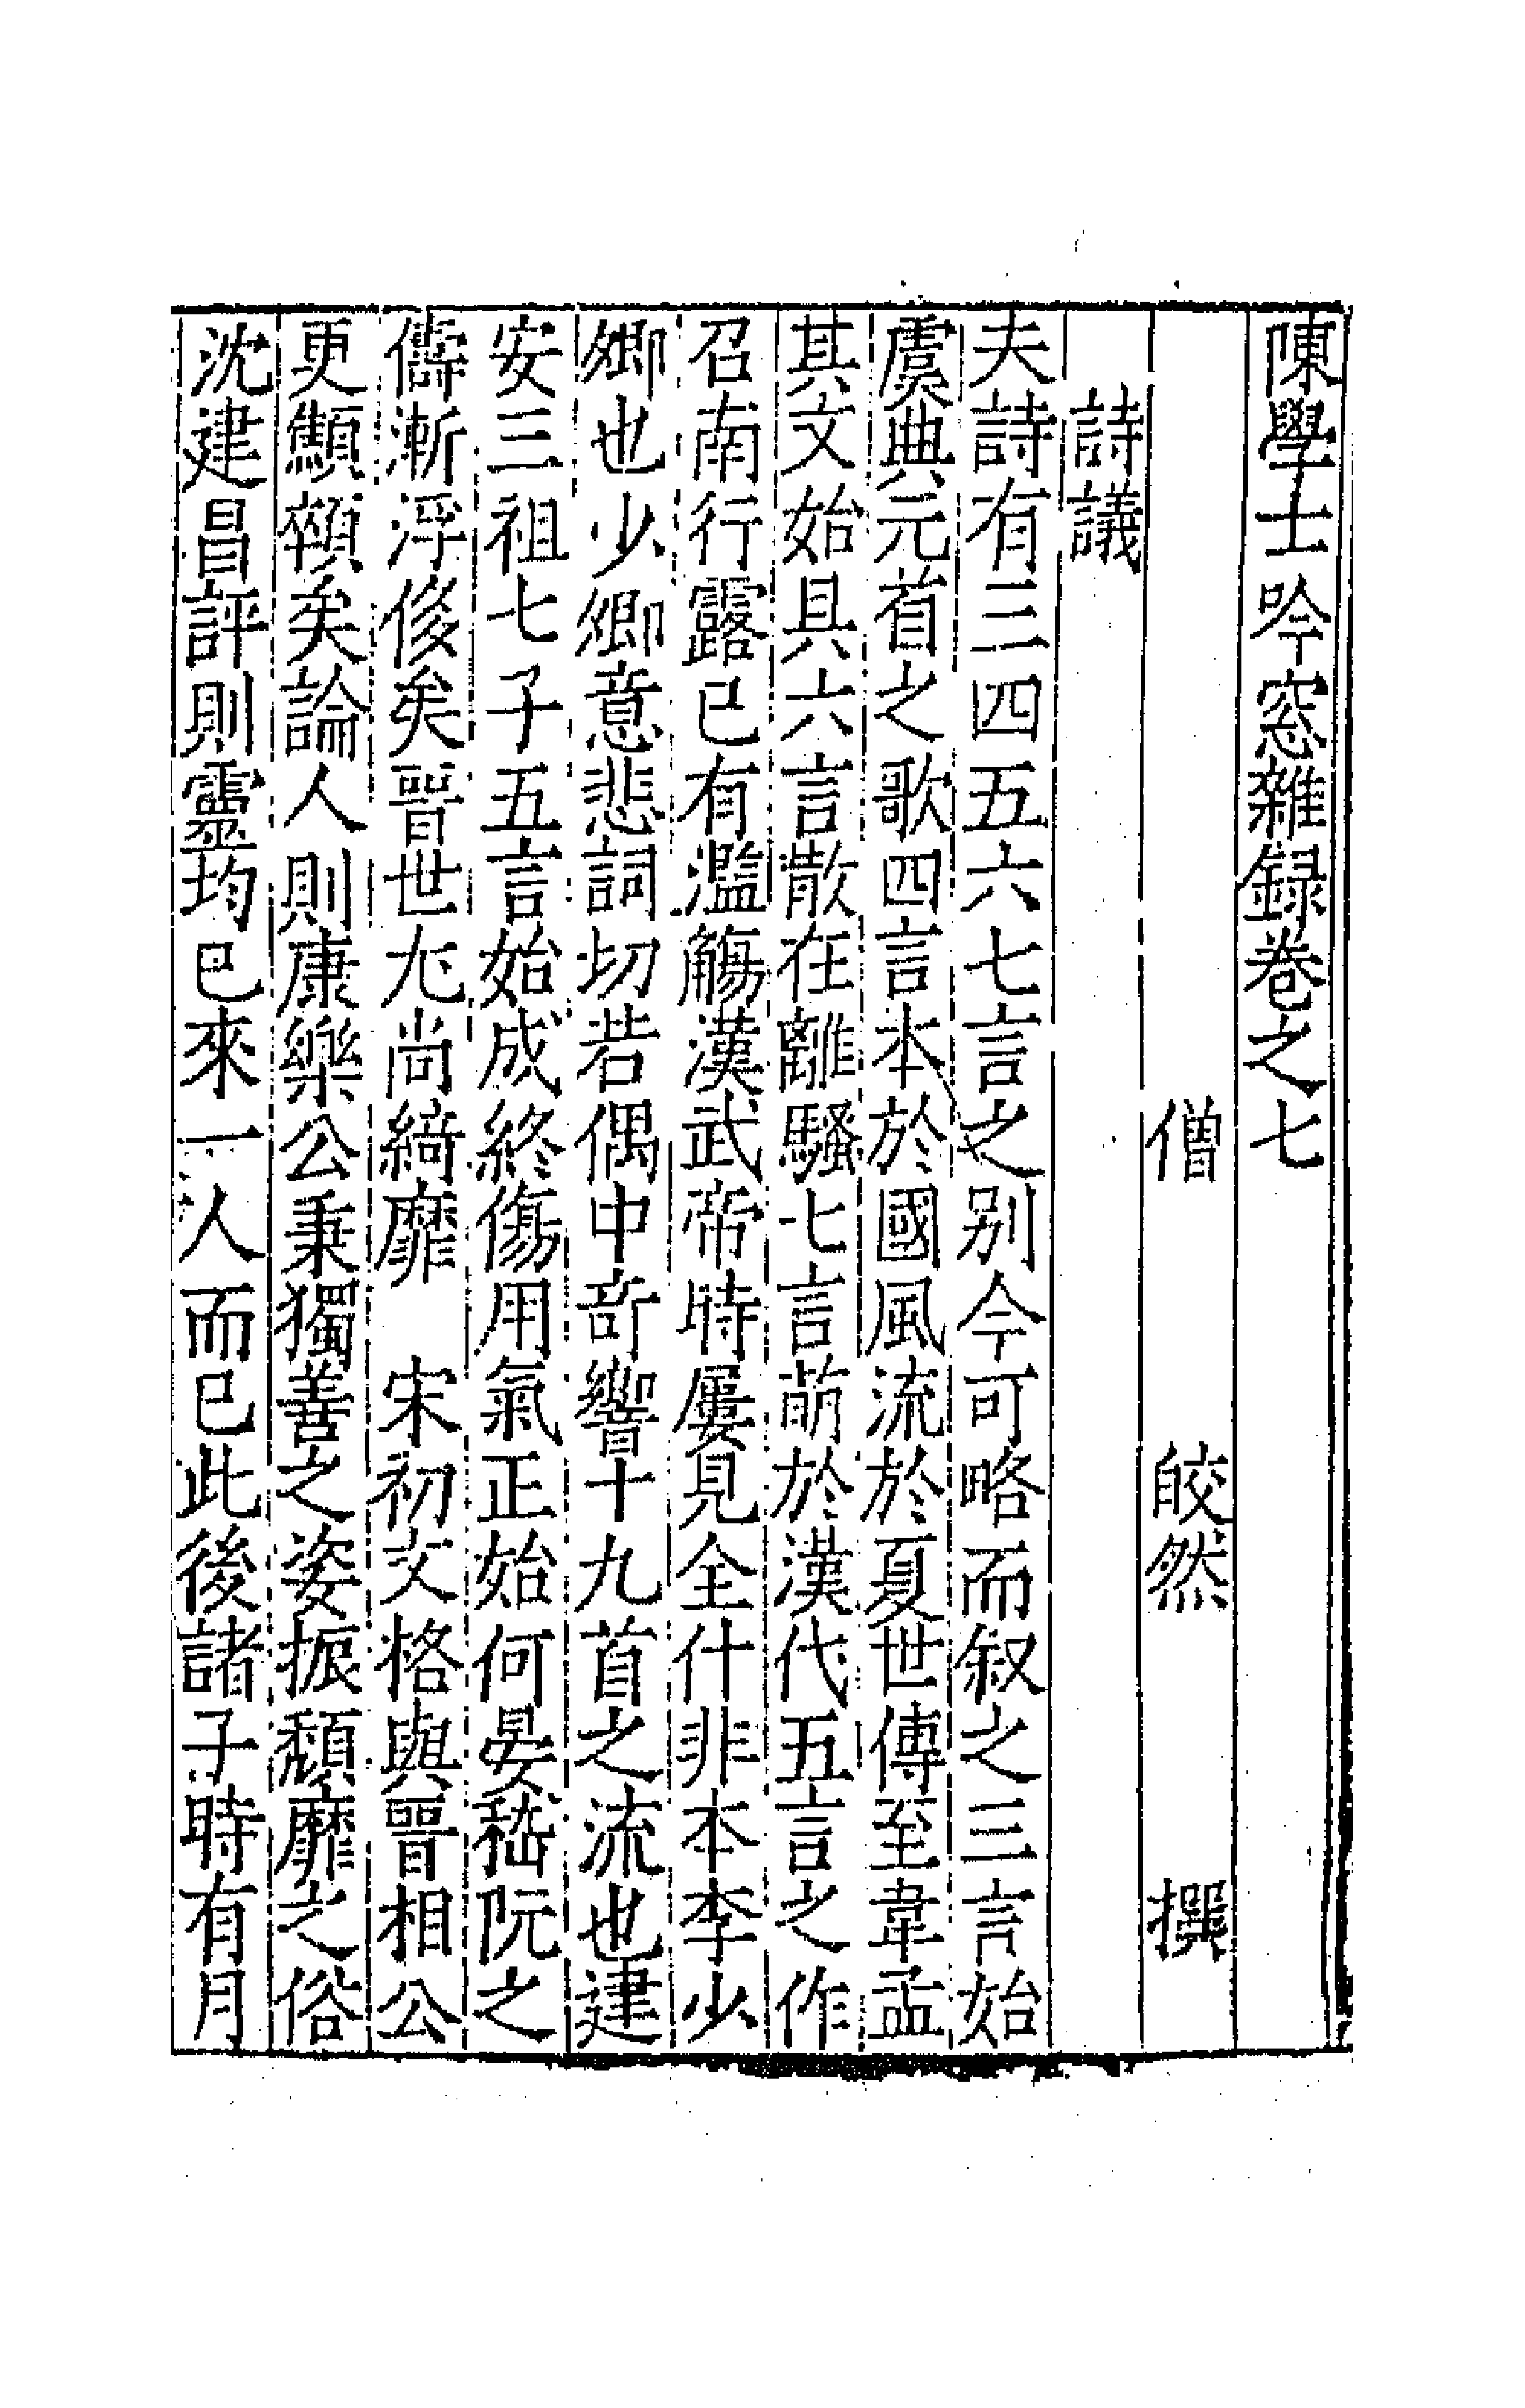 陳學士吟窓雜録卷之七
僧 皎然 撰
詩議
夫詩有三四五六七言之别今可略而叙之三言始
虞典元首之歌四言本於國風流於夏世傳至韋孟
其文始具六言散在離騷七言萌於漢代五言之作
召南行露已有濫觴漢武帝時屢見全什非本李少
卿也少卿意悲詞切若偶中竒響十九首之流也建
安三祖七子五言始成終傷用氣正始何晏嵇阮之
儔漸浮侈矣晉世尢尚綺靡 宋初文格與晉相公
更顦顇矣論人則康樂公秉獨善之姿振頹靡之俗
沈建昌評則靈均已來一人而已此後諸子時有月